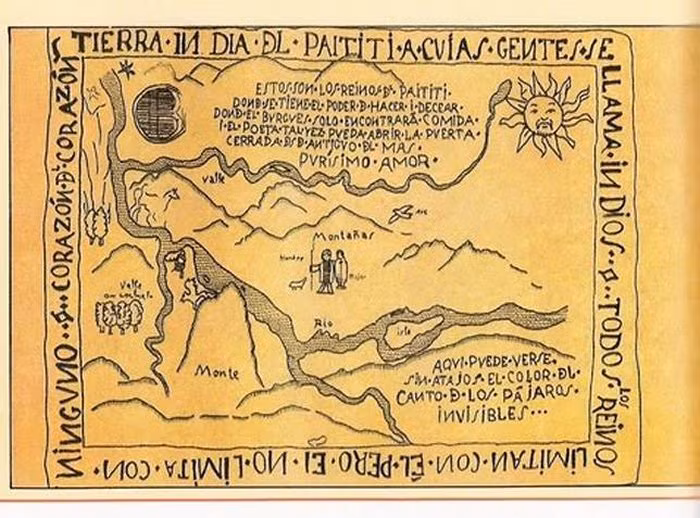 TIERRA·IN DIA·ĐL PAITITI·A CUIAS·GENTES·SE
LLAMA·IN DIOS·Đ·TODOS LOS REINOS
LIMITAN·CON·ÉL·PERO·EL·NO·LIMITA·CON·
NINGUNO··Đ··CORAZÓN·Đ·CORAZÓN
ESTOS·SON·LOS·REINOS·Đ·PAITITI·
DOND·SE·TIENE·EL·PODER·Đ·HACER·I·DECEAR·
DOND·EL·BURGUES·SOLO·ENCONTRARÁ·COMIDA·
I·EL·POETA·TALVEZ·PUEDA·ABRIR·LA·PUERTA·
CERRADA·DSD·ANTIGUO·Đ·EL·MAS·
PURISIMO·AMOR·
Valle
Ave
Montañas
Hombre
Mujer
Valle
Monte
Río
isla
AQUI·PUEDE·VERSE·
SIN·ATAJOS·EL·COLOR·ĐL·
CANTO·Đ·LOS·PÁJAROS·
INVISIBLES···